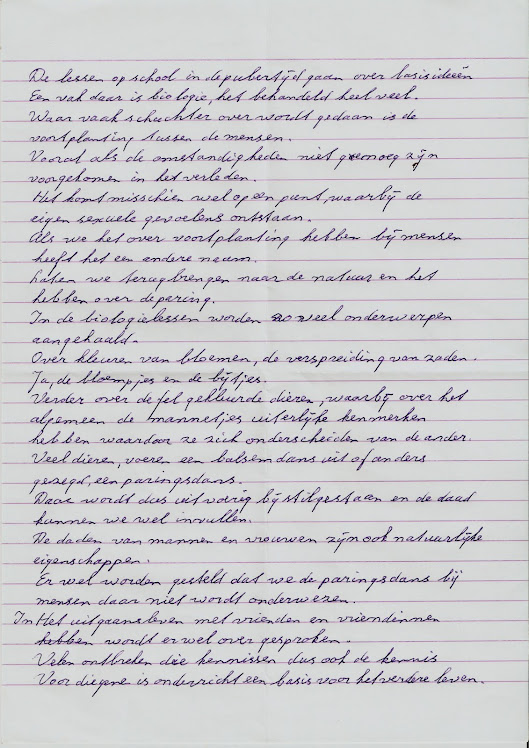 De lessen op school in de pubertijd gaan over basisideeën
Een vak daar is biologie, het behandeld heel veel.
Waar vaak schuchter over wordt gedaan is de
voortplanting tussen de mensen.
Vooral als de omstandigheden niet genoeg zijn
voorgekomen in het verleden.
Het komt misschien wel op een punt, waarbij de
eigen sexuele gevoelens ontstaan.
Als we het over voortplanting hebben bij mensen
heeft het een andere naam.
Laten we terugbrengen naar de natuur en het
hebben over de paring.
In de biologielessen worden zo veel onderwerpen
aangehaald.
Over kleuren van bloemen, de verspreiding van zaden.
Ja, de bloempjes en de bijtjes.
Verder over de fel gekleurde dieren, waarbij over het
algemeen de mannetjes uiterlijke kenmerken
hebben waardoor ze zich onderscheiden van de ander.
Veel dieren, voeren een balsemdans uit of anders
gezegd, een paringsdans.
Daar wordt dus uitvoerig bij stilgestaan en de daad
kunnen we wel invullen.
De daden van mannen en vrouwen zijn ook natuurlijke
eigenschappen.
Er wel worden gesteld dat we de paringsdans bij
mensen daar niet wordt onderwezen.
In Het uitgaansleven met vrienden en vriendinnen
hebben wordt er wel over gesproken.
Velen ontbreken die kennissen dus ook de kennis
Voor diegene is onderricht een basis voor het verdere leven.